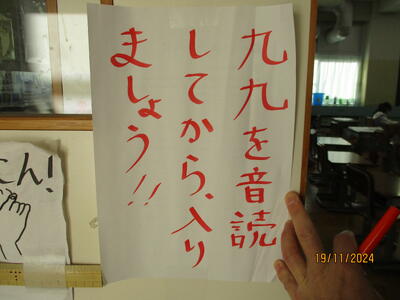 九九を音読
してから、入り
ましょう!!
こん!
19/11/2024